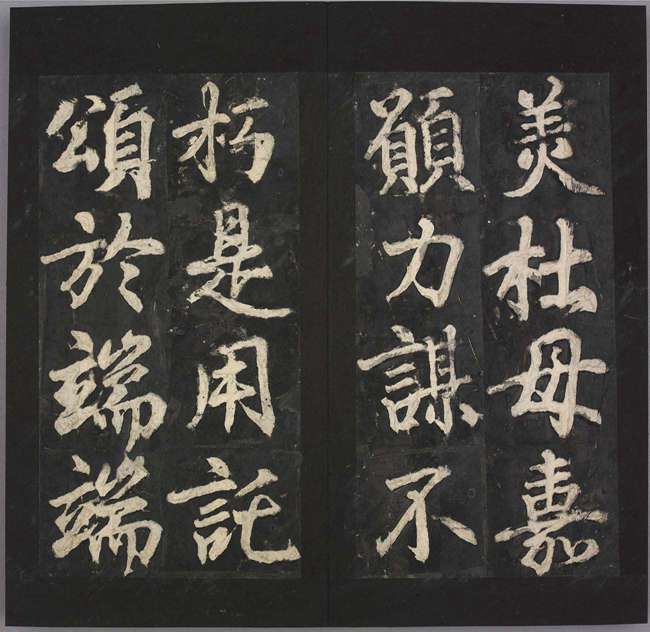 美杜母嘉
願力謀不
朽是用託
頌於端端